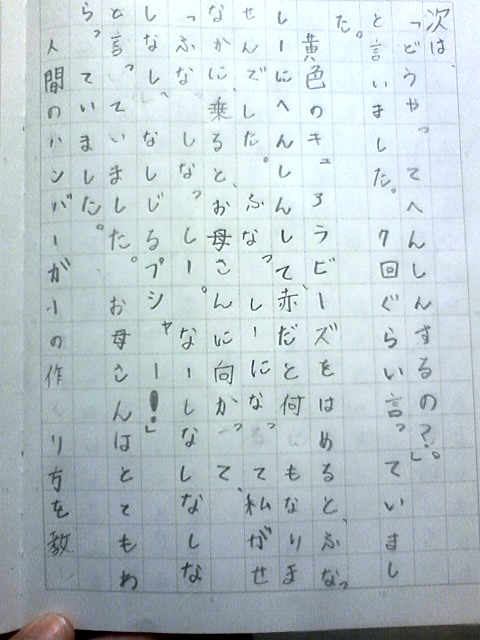 次は、
「どうやってへんしんするの？」。
と言いました。7回ぐらい言っていまし
た。
黄色のキュアラビーズをはめると、ふなっ
しーにへんしんして、赤だと何もなりま
せんでした。ふなっしーになって、私がせ
なかに、乗ると、お母さんに向かって、
「ふなしなっしー。なーしなしなしな
しなし、なしじるプシャー！」
と言っていました。お母さんはとてもわ
らっていました。
人間のハンバーガ小の作り方を教